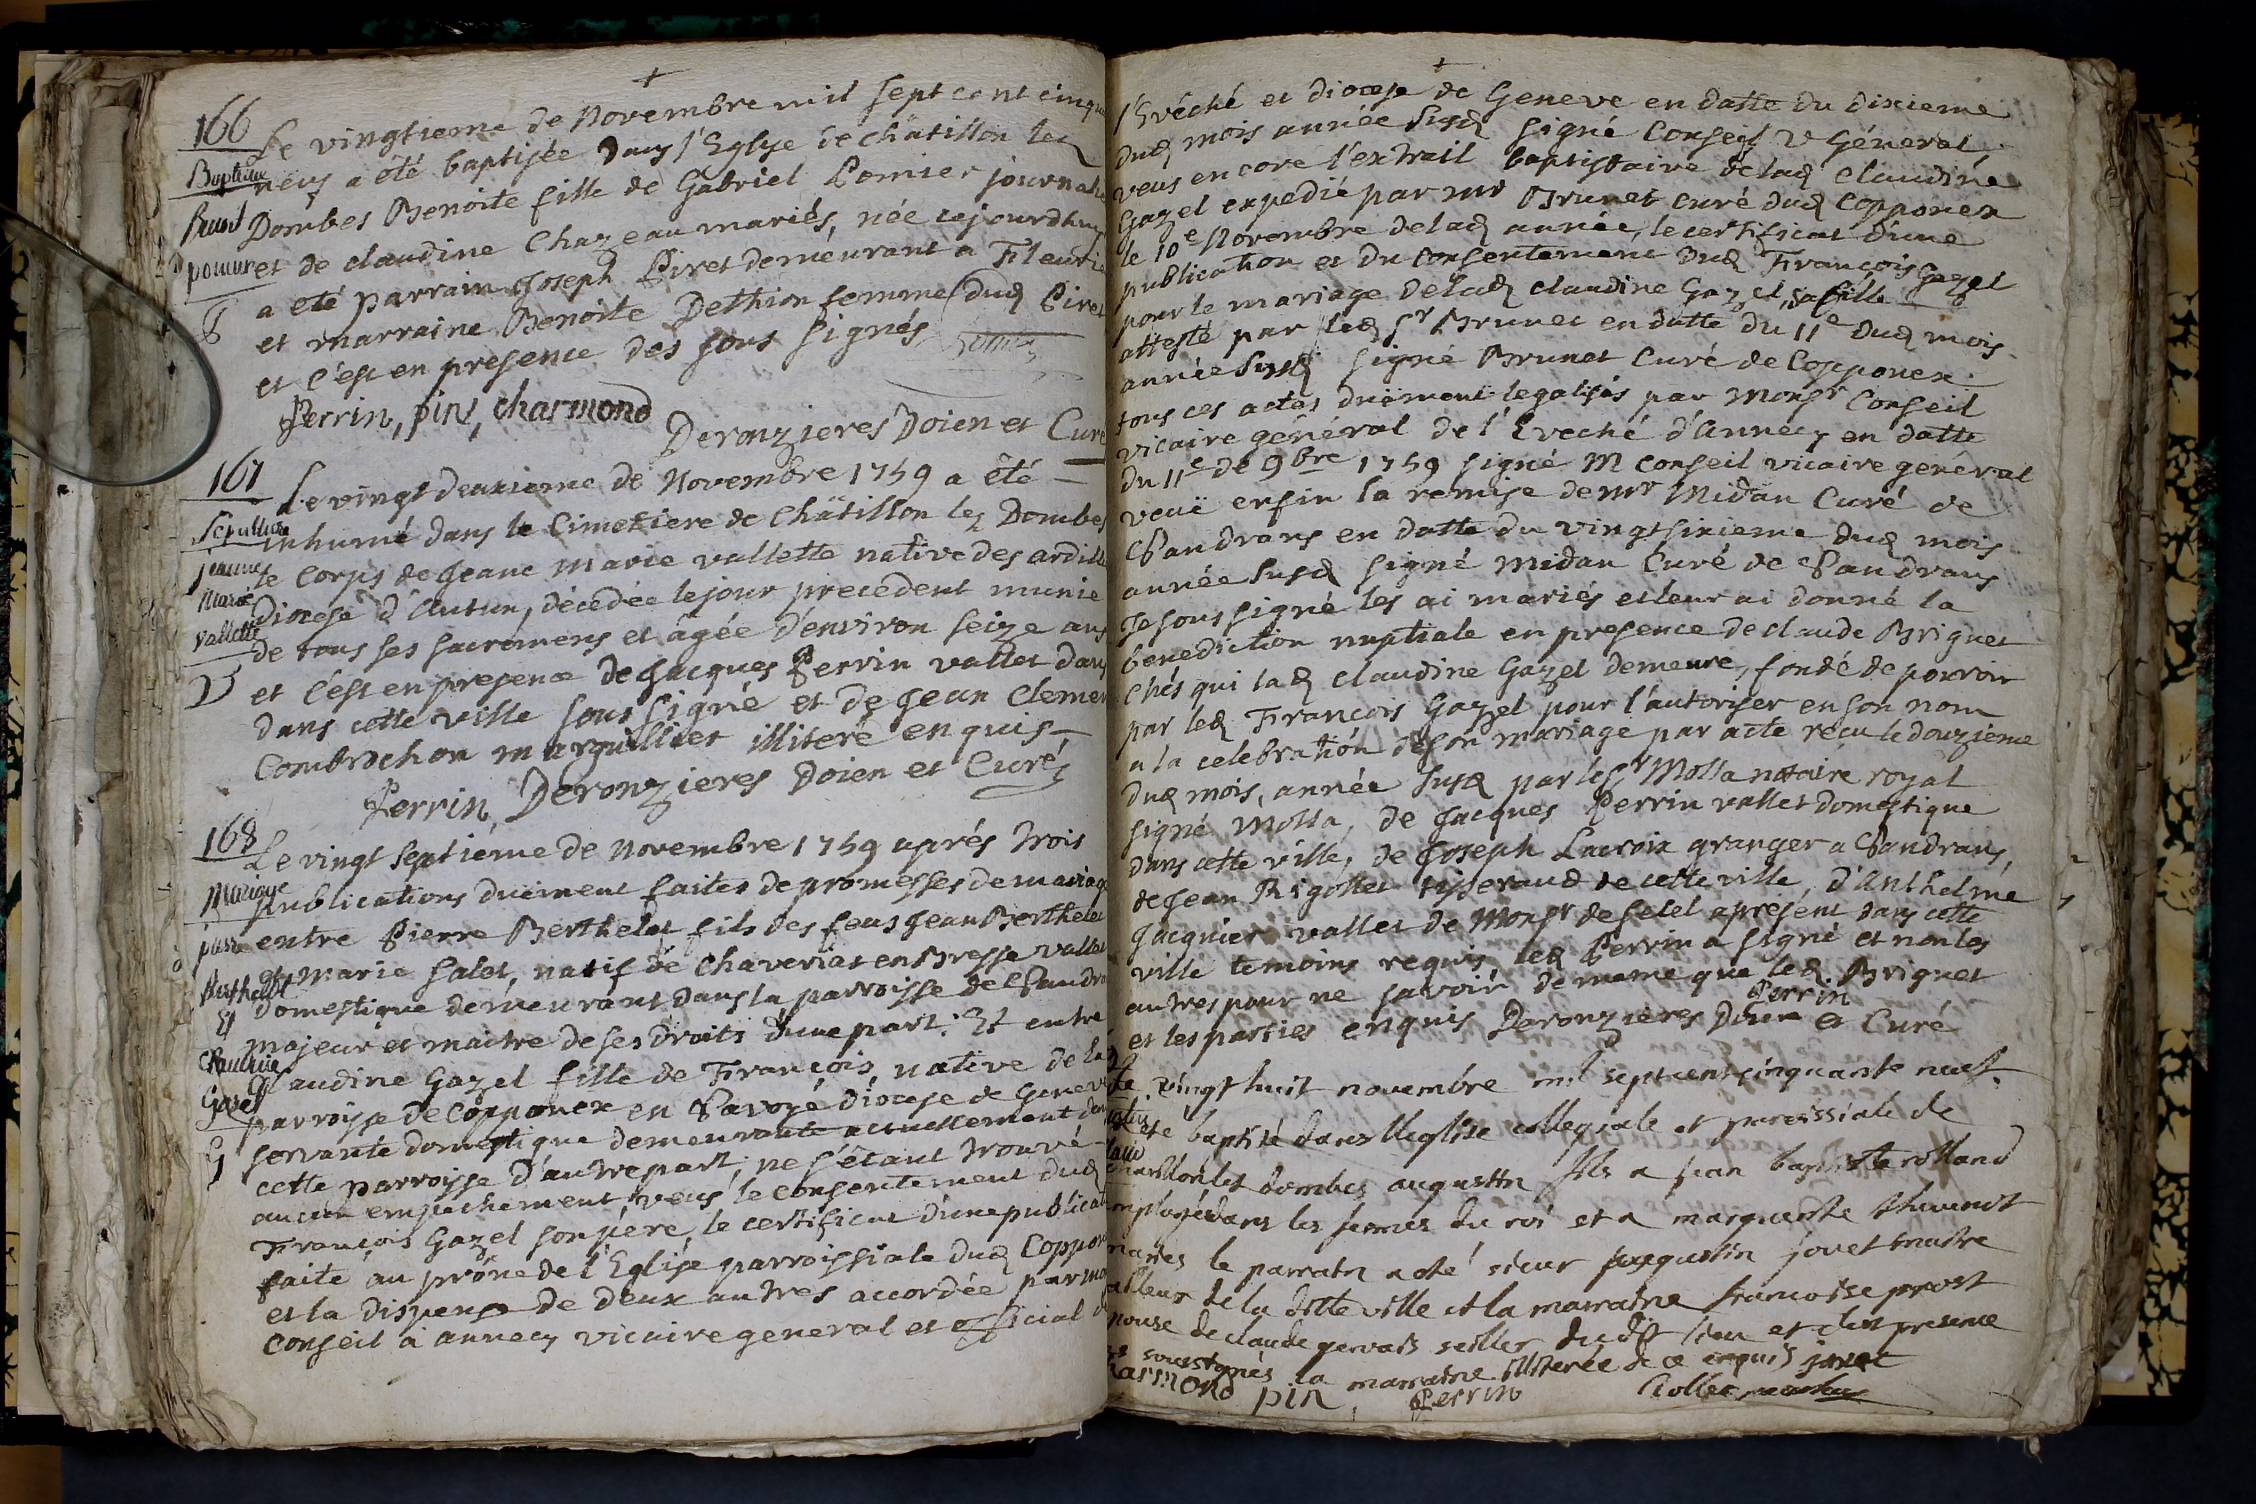 166
Baptême
Benoit
pomier
Le vingtieme de Novembre mil sept cent cinqu
neuf a été baptisée Dans l'Eglise de châtillon les
Dombes Benoite fille de Gabriel Pomier journalie
et de claudine Chazeau mariés, née cejourdhuy
a eté parrain Joseph Piret demeurant a Fleurie
et marraine Benoite Dethion femme dud Piret
et c'est en presence des sous signés
Perrin, pin, charmond
Deronzieres Doien et Curé
167
Sepulture
jeanne
Marie
vallette
Le vingt deuxieme de Novembre 1759 a été
inhumé dans le Cimetiere de Châtillon lez Dombes
le Corps de Jeane Marie vallette native des ardille
Diocese d'Autun, décedée le jour precedent munie
de tous ses sacremens et âgée d'environ seize ans
et c'est en presence de Jacques Perrin vallet dans
dans cette ville sous signé et de Jean Clemen
Combrochon marguillier illiteré enquis
Perrin, Deronzieres Doien et Curé
168
Mariage
pierre
Berthelot
Et
Claudine
Gazel
Le vingt septieme de Novembre 1759 aprés trois
publications duëment faites de promesses de mariage
entre Pierre Berthelet fils des feus Jean Berthelet
et Marie Salet, natif de Chaveriat en Bresse vallet
domestique demeurant dans la parroisse de Sandra
majeur et maitre de ses droits d'une part: Et entre
Claudine Gazel fille de François, native de la
parroisse de Copponex en Savoye diocese de Genev
servante domestique demeurante actuellement dan
cette parroisse d'autre part, ne s'étant trouvé
aucun empechement veus le consentement dud
François Gazel son pere, le certificat d'une publicat
faite au prône de l'Eglise parroissiale dud Coppon
et la dispense de deux autres accordée par mo
Conseil à annecy vicaire general et official d
l'Evêché et diocese de Geneve en datte du dixieme
dud mois année susd signé Conseil V Général,
veus encore l'extrail baptistaire de lad Claudine
Gazel expedié par mr Brunet curé dud Copponex
le 10e Novembre de lad année, le certificat d'une
publication et du consentement dud François Gazel
pour le mariage de lad claudine Gazel, sa fille
attesté par led Sr Brunet en datte du 11e dud mois
année susd signé Brunet Curé de Copponex
tous ces actes duëment legalisés par Monsr Conseil
vicaire général de l'Eveché d'Annecy en datte
du 11e de 9bre 1759 signé M Conseil vicaire general
veuë enfin la remise de mr Midan Curé de
Sandrans en datte du vingt sixieme dud mois
année susd signé midan Curé de Sandrans
Je sous signé les ai mariés et leur ai donné la
benediction nuptiale en presence de claude Briguet
chés qui lad Claudine Gazel demeure, fondé de pouvoir
par led François Gazel pour l'autoriser en son nom
a la celebration de son mariage par acte recu le douzieme
dud mois, année susd par le Sr Molla notaire royal
signé Molla, de Jacques Perrin vallet domestique
dans cette ville, de Joseph Lacroix granger a Sandrans,
de Jean Rigollet tisserand de cette ville, d'Anthelme
Jacquier vallet de Monsr de Selel apresent dans cette
ville temoins requis led Perrin a signé et non les
autres pour ne savoir de meme que led Briguet
et les parties enquis Deronzieres Doien et Curé
Perrin
Le vingt huit novembre mil sept cent cinquante neuf
eté baptisé dans lleglise collegiale et paroissiale de
chatillon les dombes augustin fils a jean baptiste rolland
employé dans les fermes du roi et a marguerite thevenot
mariés le parrain a eté sieur augustin jovet maitre
tailleur de la ditte ville et la marraine francoise prost
epouse de claude gervais sellier dudit lieu et cest presence
soussignés la marraine illiterée de ce enquis jovet
charmond pin Perrin